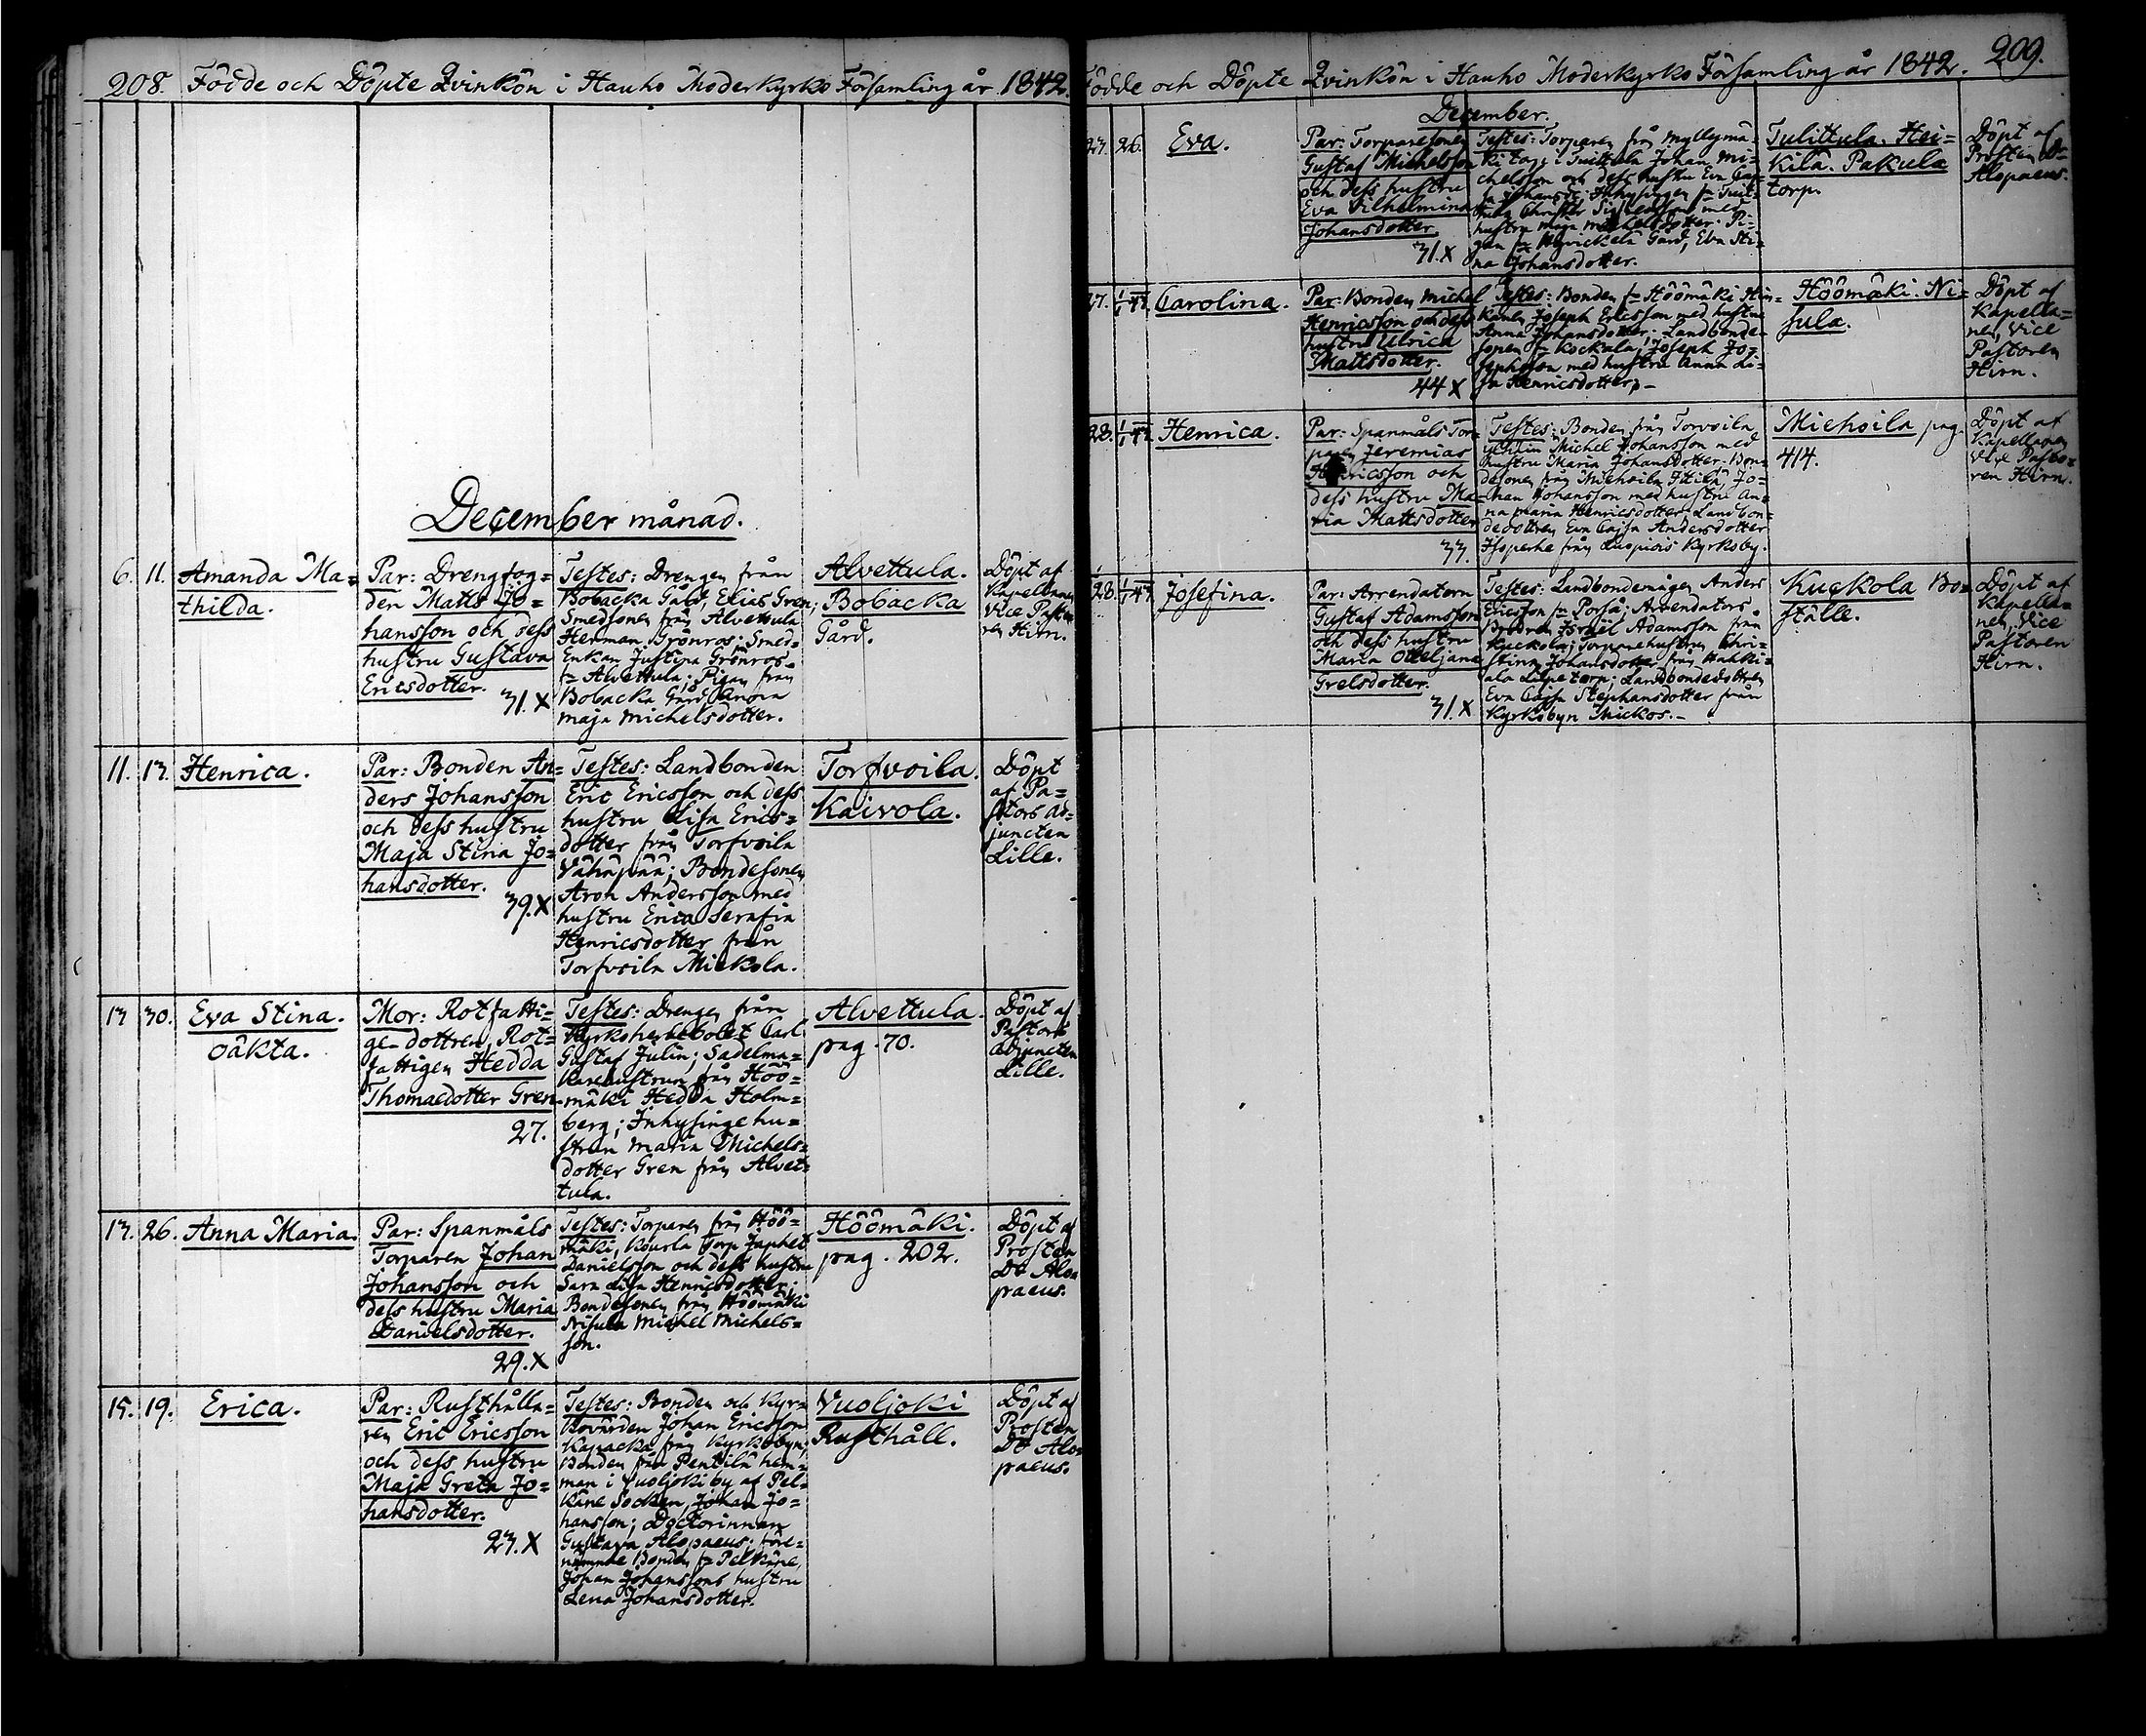 208. Födde och Döpte Qvinkön i Hauho Moderkyrko Församling år 1842.
December månad.
6. 11. Amanda Ma=
thilda.
Par: Drengfog=
den Matts Jo=
hansson och dess
hustru Gustava
Ericsdotter.
31. X
Testes: Drengen från
Bobacka Gård, Elias Gren;
Smedsonen från Alvettula
Herman Grönros; Smed=
Enkan Justina Grönros
fr Alvettula; Pigan från
Bobacka Gård, Anna
Maja Michelsdotter.
Alvettula.
Bobacka
Gård.
Döpt af
Kapellanen
Vice Pasto
ren Hirn.
11. 13. Henrica.
Par: Bonden An=
ders Johansson
och dess hustru
Maja Stina Jo=
hansdotter.
39. X
Testes: Landbonden
Eric Ericsson och dess
hustru Lisa Erics=
dotter från Torfvoila
Vähäpää; Bondesonen
Aron Andersson med
hustru Erica Serafia
Henricsdotter från
Torfvoila Mickola.
Torfvoila.
Kaivola.
Döpt
af Pa=
stors ad=
juncten
Lille.
13 30. Eva Stina.
oäkta.
Mor: Rotfatti=
ge-dottren, Rot=
fattigen Hedda
Thomaedotter Gren
27.
Testes: Drengen från
Kyrkoherdebolet Carl
Gustaf Julin; Sadelma=
karehustrun från Höö=
mäki Hedda Holm=
berg; Inhysinge hu=
strun Maria Michels=
dotter Gren från Alvet=
tula.
Alvettula.
pag. 70.
Döpt af
Pastors
adjuncten
Lille.
13. 26. Anna Maria.
Par: Spanmåls
Torparen Johan
Johansson och
dess hustru Maria
Danielsdotter.
29. X
Testes: Torparen från Höö=
mäki, Kourla Torp Japhet
Danielsson och dess hustru
Sara Lisa Henricsdotter;
Bondesonen från Höömäki
Nisula Michel Michels=
son.
Höömäki.
pag. 202.
Döpt af
Prosten
Dr Alo
paeus.
15. 19. Erica.
Par: Rusthålla=
ren Eric Ericsson
och dess hustru
Maja Greta Jo=
hansdotter.
23. X
Testes: Bonden och Kyr=
kovärden Johan Ericsson
från Kyrkobyn;
Bonden från Pentilä hem=
man i Vuoljoki by af Pel=
käne Socken, Johan Jo=
hansson; Doctorinnan
Gustava Alopaeus; före=
nämnde Bonden fr Pelkäne,
Johan Johanssons hustru
Lena Johansdotter.
Vuoljoki
Rusthåll.
Döpt af
Prosten
Dr Alo
paeus.
Födde och Döpte Qvinkön i Hauho Moderkyrko Församling år 1842. 209.
December.
23. 26. Eva.
Par: Torparesonen
Gustaf Michelsson
och dess hustru
Eva Vilhelmina
Johansdotter.
31. X
Testes: Torparen från Myllymä=
ki Johan Mi=
chelsson och dess hustru Eva Caj=
sa Johansd:; Inhysingen fr Tuit=
tula Christer med
hustru Maja Michelsdotter. Pi=
gan fr Gård, Eva Sti=
na Johansdotter.
Tulittula. Hei=
kilä. Pakula
torp.
Döpt af
Prosten Dr
Alopaeus.
27. 1/1 43. Carolina.
Par: Bonden Michel
Henricsson och dess
hustru Ulrica
Mattsdotter.
44 X
Testes: Bonden fr Höömäki
Joseph Ericsson med hustru
Anna Johansdotter; Landbonde=
sonen fr Kockala, Joseph Jo=
sephsson med hustru Anna Li=
sa Henricsdotter.
Höömäki. Ni=
sula.
Döpt af
Kapella=
nen, Vice
Pastoren
Hirn.
28. 1/1 43. Henrica.
Par: Spanmåls Tor=
paren Jeremias
Henricsson och
dess hustru Ma=
ria Mattsdotter
33.
Testes: Bonden från Torvoila
Michel Johansson med
hustru Maria Johansdotter. Bon=
desonen från Miehoila Jo=
han Johansson med hustru An=
na Maria Henricsdotter. Landbon=
dedottren Eva Cajsa Andersdotter
från Kyrkoby.
Miehoila pag.
414.
Döpt af
Kapellanen
Vice Pasto=
ren Hirn.
28. 1/1 43. Josefina.
Par: Arrendatorn
Gustaf Adamsson
och dess hustru
Maria Otteljana
Grelsdotter.
31. X
Testes: Landbondemågen Anders
Ericsson fr Porsa; Arrendators
Brodren Israël Adamsson från
Kuckola; Torparehustrun Chri=
stina Johansdotter från Hahki=
ala torp; Landbondedottren
Eva Cajsa Stephansdotter från
Kyrkobyn Mickos.
Kuckola Bo=
ställe.
Döpt af
Kapella=
nen, Vice
Pastoren
Hirn.